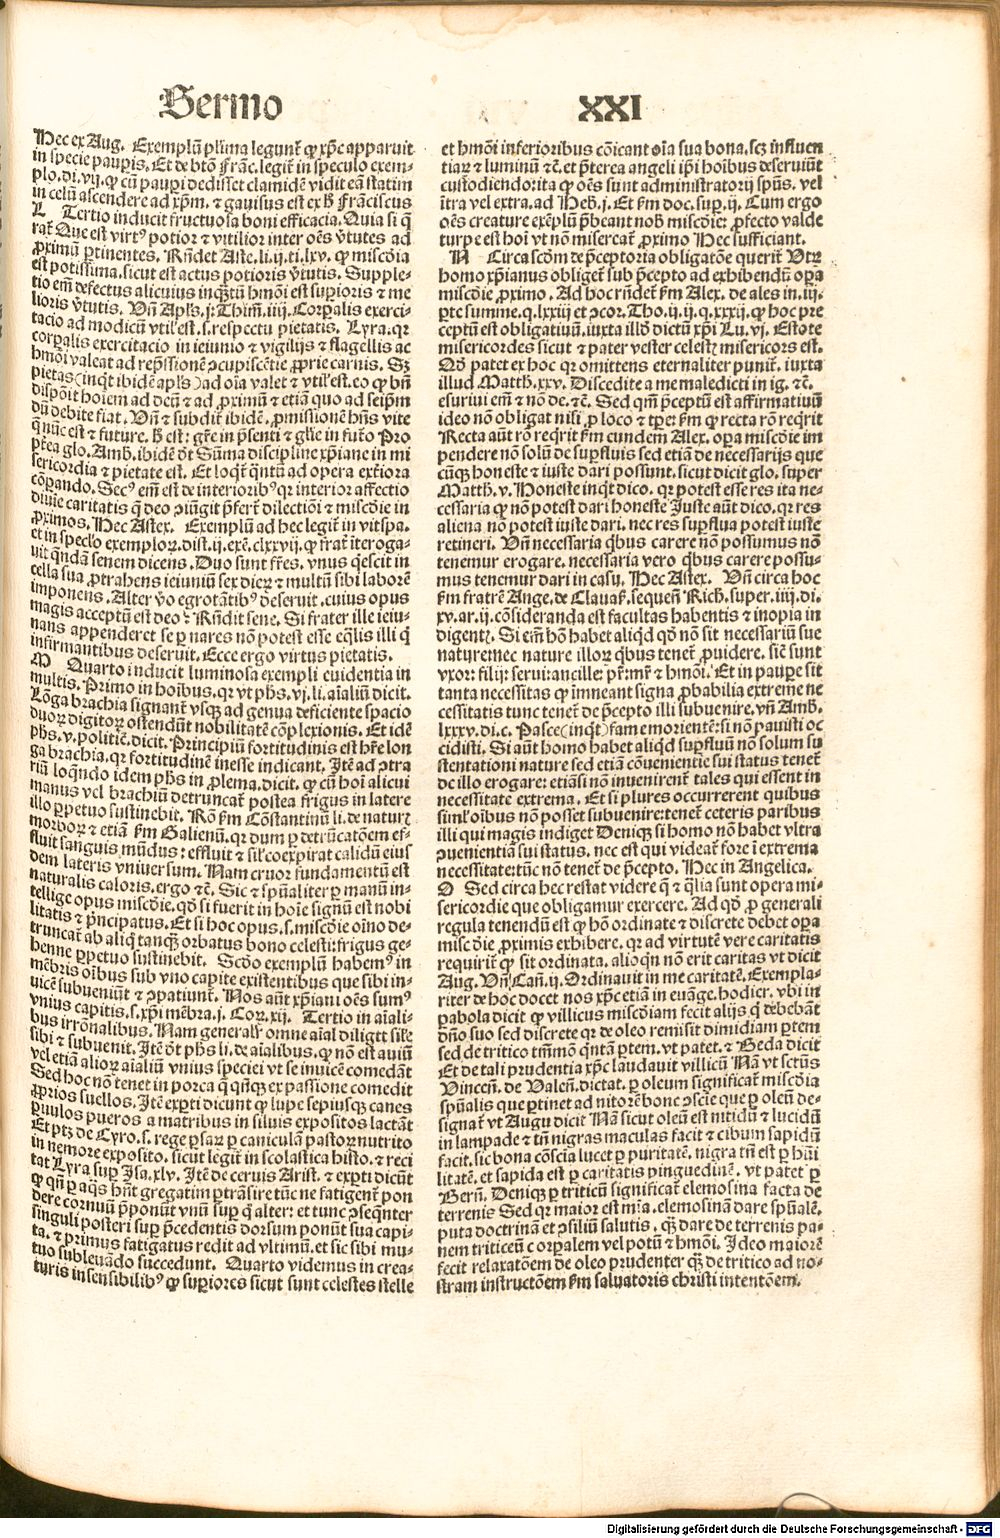 Sermo XXI
Hec ex Aug. Exemplū pl'ima legunt̄ ꝙ xp̄c apparuit
in specie paupis. Et de bt̄o Frāc. legit̄ in speculo exem-
plo. di. vij. ꝙ cū paupi dedisset clamidē vidit eā statim
in celū ascendere ad xp̄m. ⁊ gauisus est ex ħ Frāciscus
L Tertio inducit fructuosa boni efficacia. Quia si q̄
rat̄ Que est virt⁹ potior ⁊ vtilior inter oēs v̄tutes ad
ꝓximū ꝑtinentes. Rn̄det Aste. li. ij. ti. lxv. ꝙ misc̄dia
est potissima. sicut est actus potioris v̄tutis. Supple-
tio em̄ defectus alicuius inq̄tū hmōi est suꝑioris ⁊ me
lioris v̄tutis. Vn̄ Apl's. j. Thim. iiij. Corꝑalis exerci-
tacio ad modicū vtil' est. s. respectu pietatis. Lyra. qr
corꝑalis exercitacio in ieiunio ⁊ vigilijs ⁊ flagellis ac
hmōi valeat ad rep̄ssionē ↄcupiscētie ꝓprie carnis. Sꝫ
pietas (inqt ibidē apl's) ad oīa valet ⁊ vtil' est. eo ꝙ bn̄
dispōit hoīem ad deū ⁊ ad ꝓximū ⁊ etiā quo ad seip̄m
dū debite fiat. Vn̄ ⁊ subdit̄ ibidē. ꝓmissionē hn̄s vite
q̄ nūc est ⁊ future. ħ est: gr̄e in p̄senti ⁊ gl'ie in futo Pro
pt̄ea glo. Amb. ibidē dt̄ Sūma discipline xp̄iane in mi
sericordia ⁊ pietate est. Et loqt̄ q̄ntū ad opera ext̄iora
cōꝑando. Sec⁹ em̄ est de interiorib⁹ qr interior affectio
diuie caritatis q̄ deo ↄiūgit p̄fert̄ dilectiōi ⁊ misc̄die in
ꝓximos. Hec Astex. Exemplū ad hec legit̄ in vitspa.
et in specl'o exemploꝝ. dist. ij. exē. clxxvij. ꝙ frat̄ īteroga-
uit qn̄dā senem dicens. Duo sunt fr̄es. vnus q̄escit in
cella sua ꝓtrahens ieiuniū sex dieꝝ ⁊ multū sibi laborē
imponens. Alter v̄o egrotātib⁹ deseruit. cuius opus
magis acceptū est deo? Rn̄dit sene. Si frater ille ieiu-
nans appenderet se ꝑ nares nō potest esse eq̄lis illi q̄
infirmantibus deseruit. Ecce ergo virtus pietatis.
M Quarto inducit luminosa exempli euidentia in
multis. Primo in hoībus. qr vt ph's. vj. li. aīaliū dicit.
Lōga brachia signant̄ vsqꝫ ad genua deficiente spacio
duoꝝ digitoꝝ ostendūt nobilitatē cōplexionis. Et idē
ph's. v. politiē. dicit. Principiū fortitudinis est hr̄e lon
ga brachia. qr fortitudinē inesse indicant. Itē ad ↄtra
riū loqn̄do idem ph's in ꝓlema. dicit. ꝙ cū hoī alicui
manus vel brachiū detruncat̄ postea frigus in latere
illo ꝑpetuo sustinebit. Rō km Cōstantinū li. de naturꝭ
morboꝝ ⁊ etiā km Galienū. qr dum ꝑ detrūcatōem ef-
fluit sanguis mūdus: effluit ⁊ sil' coexpirat calidū eius
dem lateris vniuersum. Nam cruor fundamentū est
naturalis caloris. ergo ⁊c̄. Sic ⁊ spūaliter ꝑ manū in-
tellige opus misc̄die. qd̄ si fuerit in hoīe signū est nobi
litatis ⁊ p̄ncipatus. Et si hoc opus. s. misc̄die oīno de-
truncat̄ ab aliq̄ tanqꝫ orbatus bono celesti: frigus ge-
henne ꝑpetuo sustinebit. Scd̄o exemplū habem⁹ in
mēbris oībus sub vno capite existentibus que sibi in-
uicē subueniūt ⁊ ↄpatiunt̄. Nos aūt xp̄iani oēs sum⁹
vnius capitis. s. xp̄i mēbra. j. Coꝝ. xij. Tertio in aīali-
bus irrōnalibus. Nam general'r omne aīal diligit sil'e
sibi ⁊ subuenit. Itē dt̄ ph's li. de aīalibus. ꝙ nō est auiū
vel etiā alioꝝ aīaliū vnius speciei vt se inuicē comedāt
Sed hoc nō tenet in porca q̄ qn̄qꝫ ex passione comedit
ꝓprios suellos. Itē exꝑti dicunt ꝙ lupe sepiusqꝫ canes
ꝑuulos pueros a matribus in siluis expositos lactāt
Et ptꝫ de Cyro. s. rege ꝑsaꝝ ꝑ caniculā pastoꝝ nutrito
in nemore exposito. sicut legit̄ in scolastica histo. ⁊ reci
tat Lyra sup Isa. xlv. Itē de ceruis Arist. ⁊ exꝑti dicūt
ꝙ qn̄ ꝑ aq̄s hn̄t gregatim ꝑtrāsire tūc ne fatigent̄ pon
dere cornuū p̄ponūt vnū suꝑ q̄ alter: et tunc ↄseqn̄ter
singuli posteri suꝑ p̄cedentis dorsum ponūt sua capi-
ta. ⁊ primus fatigatus redit ad vltimū. et sic sibi mu-
tuo subleuādo succedunt. Quarto videmus in crea-
turis insensibilib⁹ ꝙ suꝑiores sicut sunt celestes stelle
et hmōi inferioribus cōicant oīa sua bona. scꝫ influen
tiaꝝ ⁊ luminū ⁊c̄. et p̄terea angeli ip̄i hoībus deseruiūt
custodiendo ita ꝙ oēs sunt administratorij sp̄us. vel
ītra vel extra. ad Heb. j. Et km doc. sup. ij. Cum ergo
oēs creature exēplū p̄beant nob̄ misc̄die: ꝓfecto valde
turpe est hoī vt nō misereat̄ ꝓximo Hec sufficiant.
N Circa scd̄m de p̄ceptoria obligatōe querit̄ Vtꝝ
homo xp̄ianus obliget̄ sub p̄cepto ad exhibendū oꝑa
misc̄die ꝓximo. Ad hoc rn̄det̄ km Alex. de ales in. iij.
ꝑte summe. q. lxxiij et ↄcor. Tho. ij. ij. q. xxxij. ꝙ hoc pre
ceptū est obligatiuū. iuxta illd̄ dictū xp̄i Lu. vj. Estote
misericordes sicut ⁊ pater vester celestꝭ misericors est.
Qd̄ patet ex hoc qr omittens eternaliter punit̄. iuxta
illud Matth. xxv. Discedite a me maledicti in ig. ⁊c̄.
esuriui em̄ ⁊ nō de. ⁊c̄. Sed qm̄ p̄ceptū est affirmatiuū
ideo nō obligat nisi ꝓ loco ⁊ tpe: km ꝙ recta rō reqrit
Recta aūt rō reqrit km eundem Alex. oꝑa misc̄die im
pendere nō solū de suꝑfluis sed etiā de necessarijs que
cūqꝫ honeste ⁊ iuste dari possunt. sicut dicit glo. super
Matth. v. Honeste inqt dico. qr potest esse res ita ne-
cessaria ꝙ nō potest dari honeste Juste aūt dico. qr res
aliena nō potest iuste dari. nec res suꝑflua potest iuste
retineri. Vn̄ necessaria qbus carere nō possumus nō
tenemur erogare. necessaria vero qbus carere possu-
mus tenemur dari in casu. Hec Astex. Vn̄ circa hoc
km fratrē Ange. de Clauas. sequen̄ Rich. super. iiij. di.
xv. ar. ij. cōsideranda est facultas habentis ⁊ inopia in
digentꝭ. Si em̄ hō habet aliqd qd̄ nō sit necessariū sue
nature: nec nature illoꝝ qbus tenet̄ ꝓuidere. siē sunt
vxor: filij: serui: ancille: pr̄: mr̄ ⁊ hmōi. Et in pauꝑe sit
tanta necessitas ꝙ imneant signa ꝓbabilia extreme ne
cessitatis tunc tenet̄ de p̄cepto illi subuenire. vn̄ Amb.
lxxxv. di. c. Pasce (inqt) fame morientē: si nō pauisti oc
cidisti. Si aūt homo habet aliqd suꝑfluū nō solum su
stentationi nature sed etiā cōuenientie sui status tenet̄
de illo erogare: etiāsi nō inuenirent̄ tales qui essent in
necessitate extrema. Et si plures occurrerent quibus
siml' oībus nō posset subuenire: tenet̄ ceteris paribus
illi qui magis indiget Deniqꝫ si homo nō habet vltra
ↄuenientiā sui status. nec est qui videat̄ fore ī extrema
necessitate: tūc nō tenet̄ de p̄cepto. Hec in Angelica.
O Sed circa hec restat videre q̄ ⁊ q̄lia sunt opera mi-
sericordie que obligamur exercere. Ad qd̄ ꝓ generali
regula tenendū est ꝙ hō ordinate ⁊ discrete debet oꝑa
misc̄die ꝓximis exhibere. qr ad virtutē vere caritatis
requirit̄ ꝙ sit ordinata. alioqn nō erit caritas vt dicit
Aug. Vn̄ Cān. ij. Ordinauit in me caritatē. Exempla-
riter de hoc docet nos xp̄c etiā in euāge. hodier. vbi in
ꝑabola dicit ꝙ villicus misc̄diam fecit alijs q̄ debebāt
dn̄o suo sed discrete qr de oleo remisit dimidiam ꝑtem
sed de tritico tm̄mō q̄ntā ꝑtem. vt patet. ⁊ Beda dicit
Et de tali prudentia xp̄c laudauit villicū Nā vt sct̄us
Vincen̄. de Valen̄. dictat. ꝑ oleum significat̄ misc̄dia
sp̄ualis que ꝑtinet ad nitorē bone ↄscie que ꝑ oleū de-
signat̄ vt Augu dicit Nā sicut oleū est nitidū ⁊ lucidū
in lampade ⁊ tn̄ nigras maculas facit ⁊ cibum sapidū
facit. sic bona cōscīa lucet ꝑ puritatē. nigra tn̄ est ꝑ hūi
litatē. et sapida est ꝑ caritatis pinguedinē. vt patet ꝑ
Bern̄. Deniqꝫ ꝑ triticū significat̄ elemosina facta de
terrenis Sed qr maior est mīa. elemosinā dare sp̄ualē.
puta doctrinā et ↄsiliū salutis. qꝫ dare de terrenis pa-
nem triticeū corꝑalem vel potū ⁊ hmōi. Ideo maiorē
fecit relaxatōem de oleo prudenter qꝫ de tritico ad no-
stram instructōem km saluatoris christi intentōem.
Digitalisierung gefördert durch die Deutsche Forschungsgemeinschaft - DFG